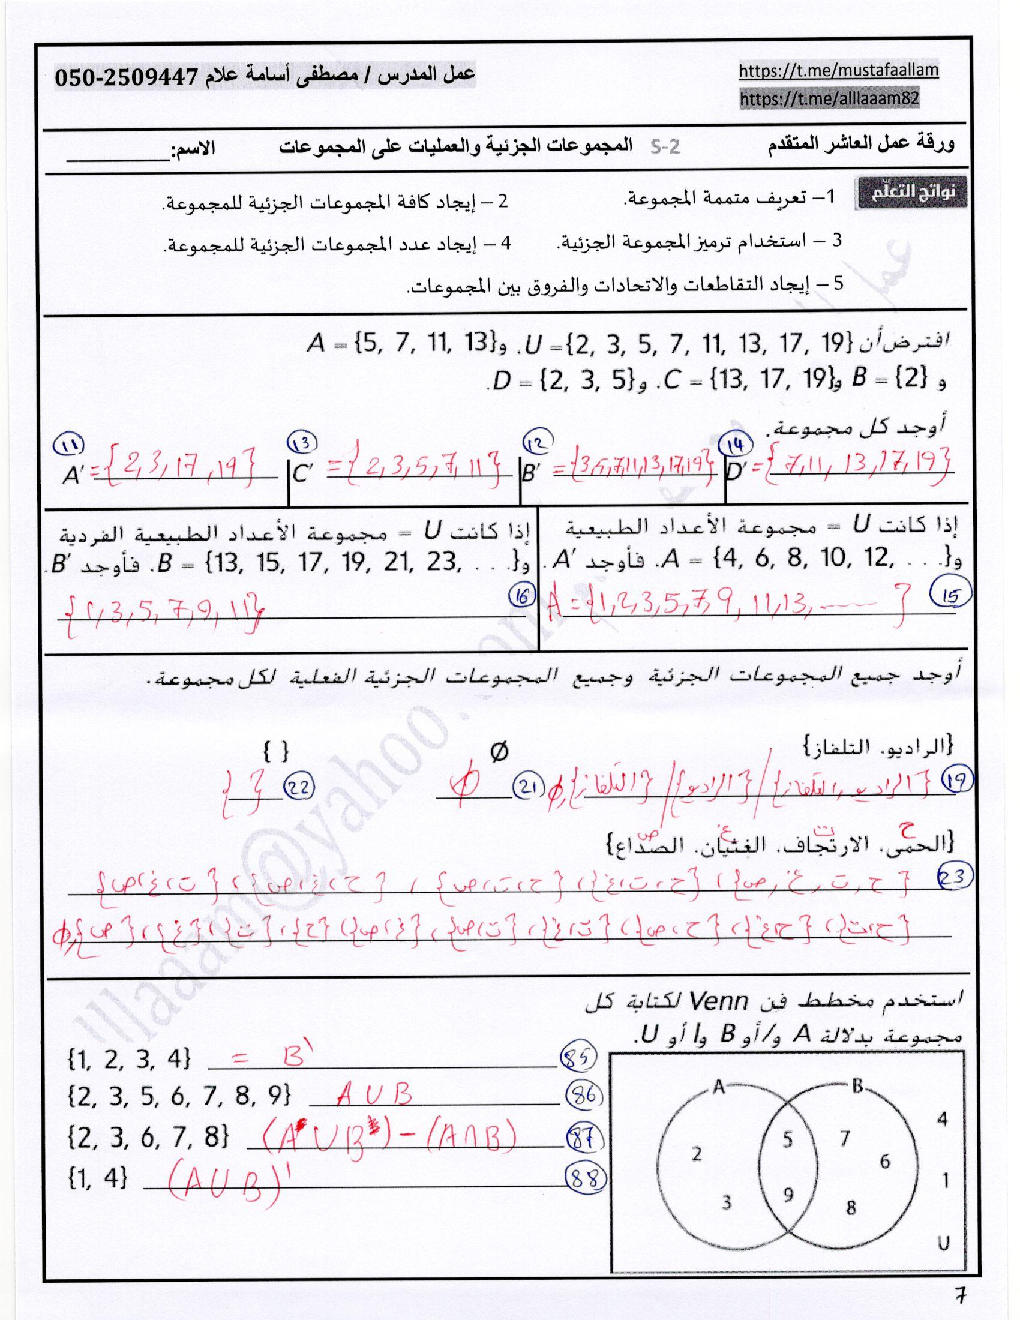 عمل المدرس / مصطفى أسامة علام 2509447-050
https://t.me/mustafaallam
https://t.me/alllaaam82
ورقة عمل العاشر المتقدم 5-2 المجموعات الجزئية والعمليات على المجموعات الاسم: __________
نواتج التعلّم
1– تعريف متممة المجموعة. 2 – إيجاد كافة المجموعات الجزئية للمجموعة.
3 – استخدام ترميز المجموعة الجزئية. 4 – إيجاد عدد المجموعات الجزئية للمجموعة.
5 – إيجاد التقاطعات والاتحادات والفروق بين المجموعات.
افترض أن U = {2, 3, 5, 7, 11, 13, 17, 19}. و A = {5, 7, 11, 13}
و B = {2} و C = {13, 17, 19}. و D = {2, 3, 5}.
أوجد كل مجموعة.
11 13 12 14
A′ = {2,3,17,19} C′ = {2,3,5,7,11} B′ = {3,5,7,11,13,17,19} D′ = {7,11,13,17,19}
إذا كانت U = مجموعة الأعداد الطبيعية
و A = {4, 6, 8, 10, 12, . . .}. فأوجد A′.
15 A = {1,2,3,5,7,9,11,13,------}
إذا كانت U = مجموعة الأعداد الطبيعية الفردية
و B = {13, 15, 17, 19, 21, 23, . . .}. فأوجد B′.
16 {1,3,5,7,9,11}
أوجد جميع المجموعات الجزئية وجميع المجموعات الجزئية الفعلية لكل مجموعة.
{الراديو، التلفاز} Ø { }
19 {الراديو, التلفاز} / {الراديو} / {التلفاز}, ϕ 21 ϕ 22 { }
ح ت غ ص
{الحمى، الارتجاف، الغثيان، الصّداع}
23 {ح, ت, غ, ص}, {ح, ت, غ}, {ح, ت, ص}, {ح, غ, ص}, {ت, غ, ص}
{ح, ت}, {ح, غ}, {ح, ص}, {ت, غ}, {ت, ص}, {غ, ص}, {ح}, {ت}, {غ}, {ص}, ϕ
استخدم مخطط فن Venn لكتابة كل
مجموعة بدلالة A و/أو B و/أو U.
{1, 2, 3, 4} = B' 85
{2, 3, 5, 6, 7, 8, 9} A ∪ B 86
{2, 3, 6, 7, 8} (A ∪ B) – (A ∩ B) 87
{1, 4} (A ∪ B)' 88
A B
4
5 7
2 6
1
9 8
3
U
7
alllaaam@yahoo.com